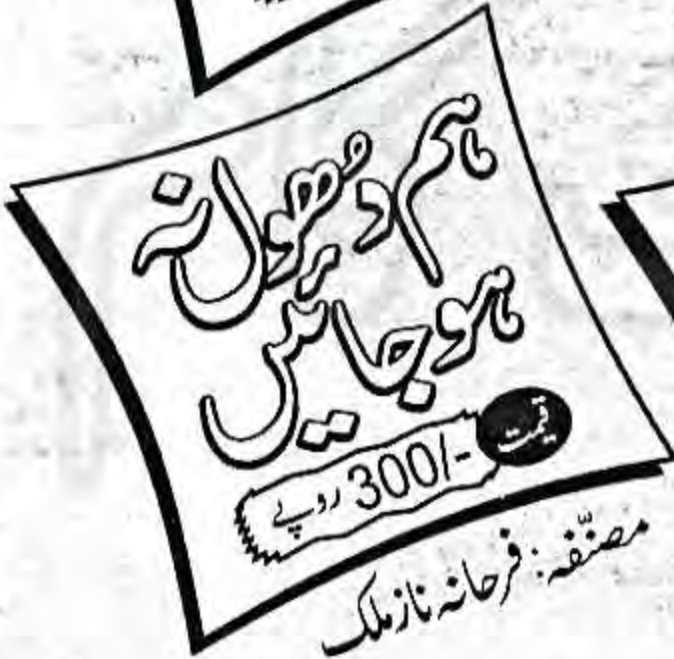 ہم دُھول نہ
ہو جائیں
قیمت
300/- روپے
مصنّفہ: فرحانہ ناز ملک